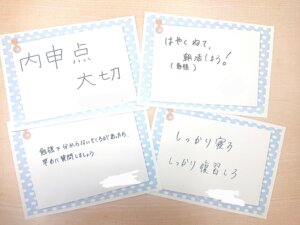 内申点
大切
はやくねて、
朝活しよう!
(勉強)
勉強で分からないところがあったら、
早めに質問しましょう
しっかり寝ろ
しっかり復習しろ